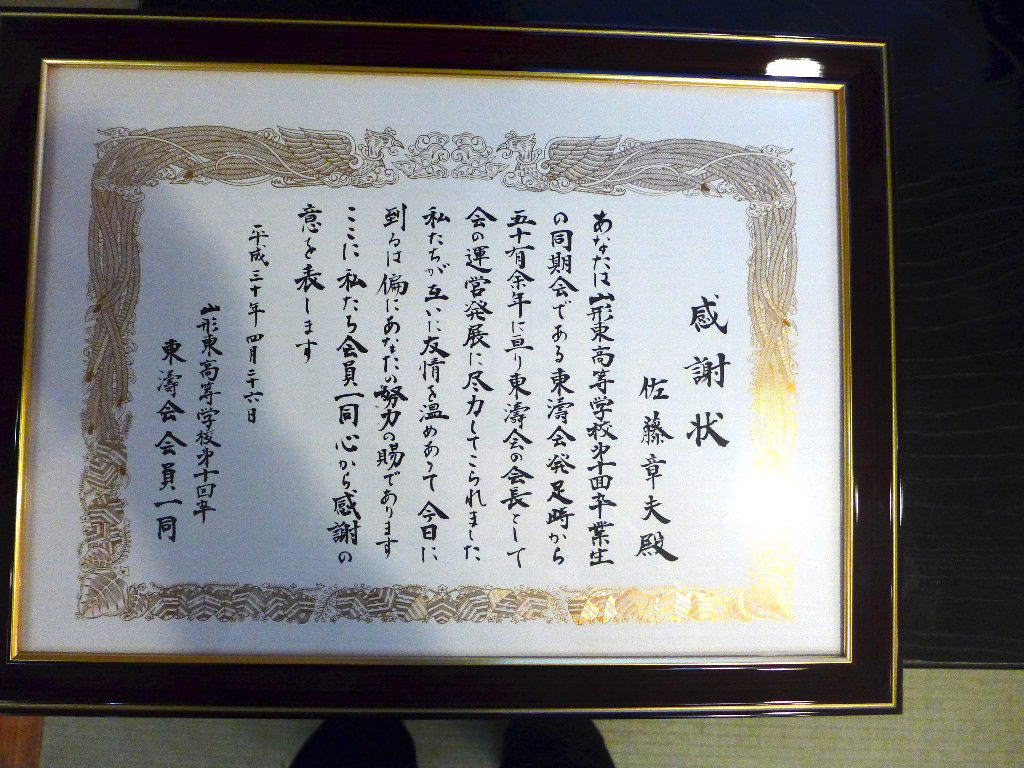 感謝状
佐藤章夫殿
あなたは山形東高等学校第十回卒業生
の同期会である東濤会発足時から
五十有余年に亘り東濤会の会長として
会の運営発展に尽力してこられました
私たちが互いに友情を温めあって今日に
到るは偏にあなたの努力の賜であります
ここに私たち会員一同心から感謝の
意を表します
平成三十年四月二十六日
山形東高等学校第十回卒
東濤会会員一同